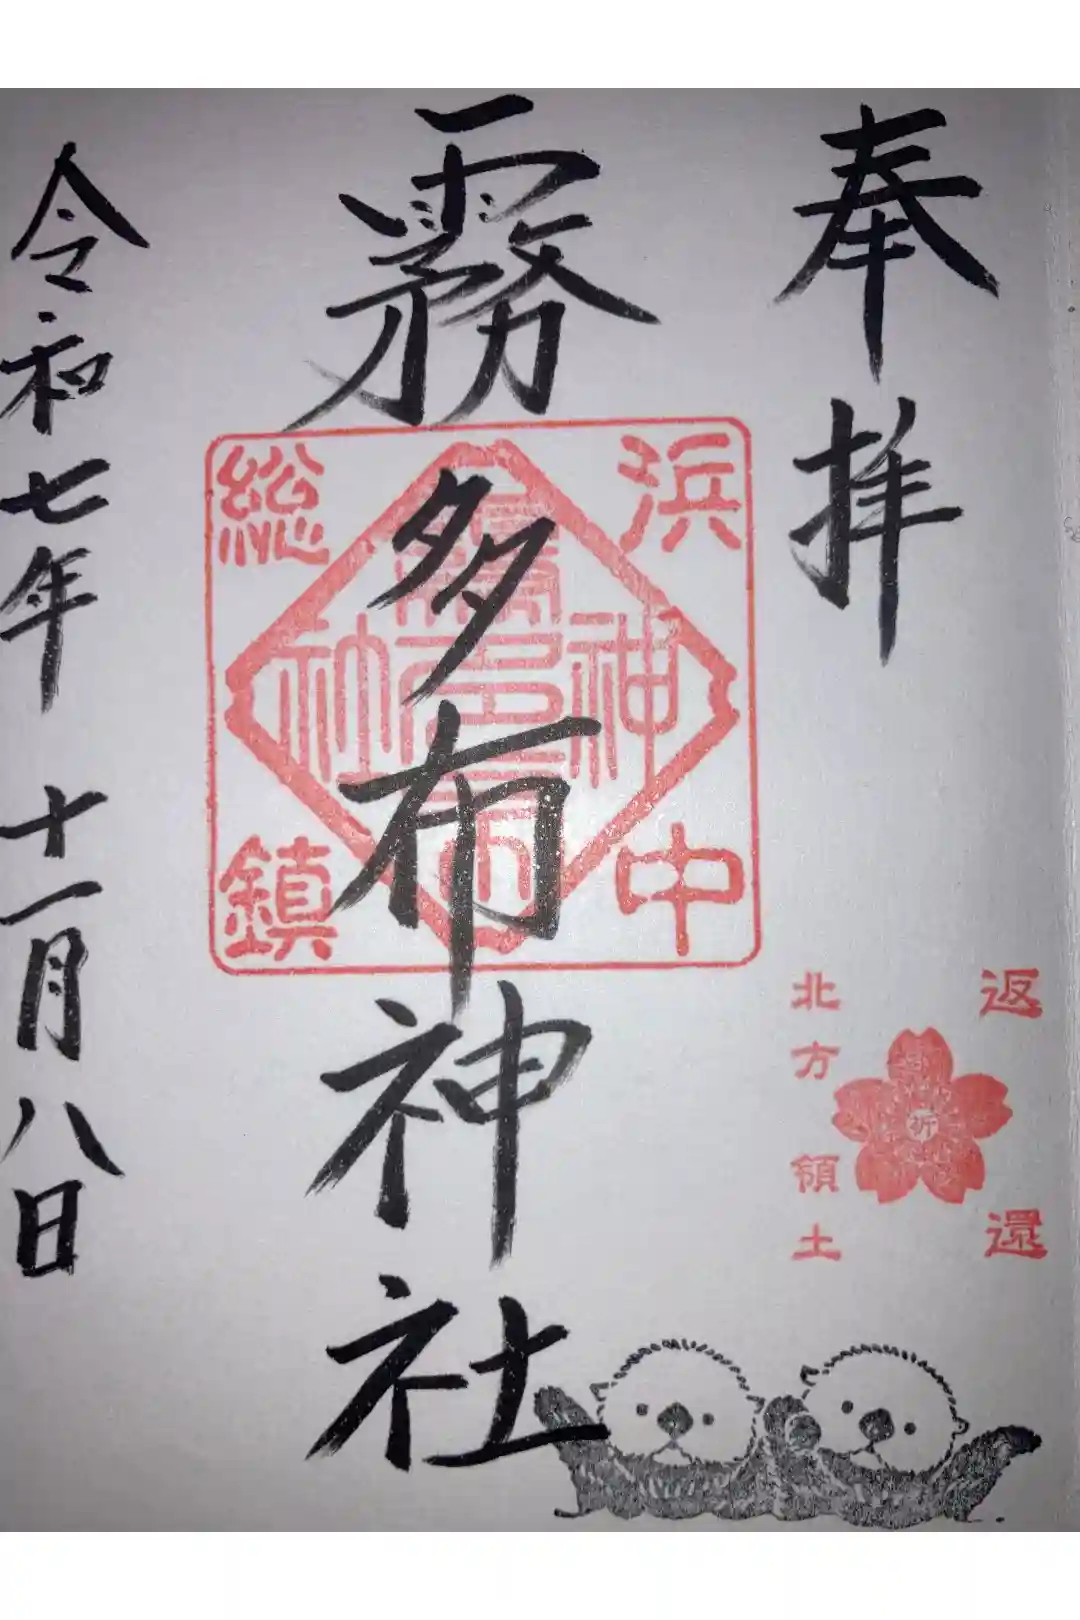 奉拝
返還
北方領土
祈
霧多布神社
浜中
総鎮
霧多布
神社
令和七年 十一月八日